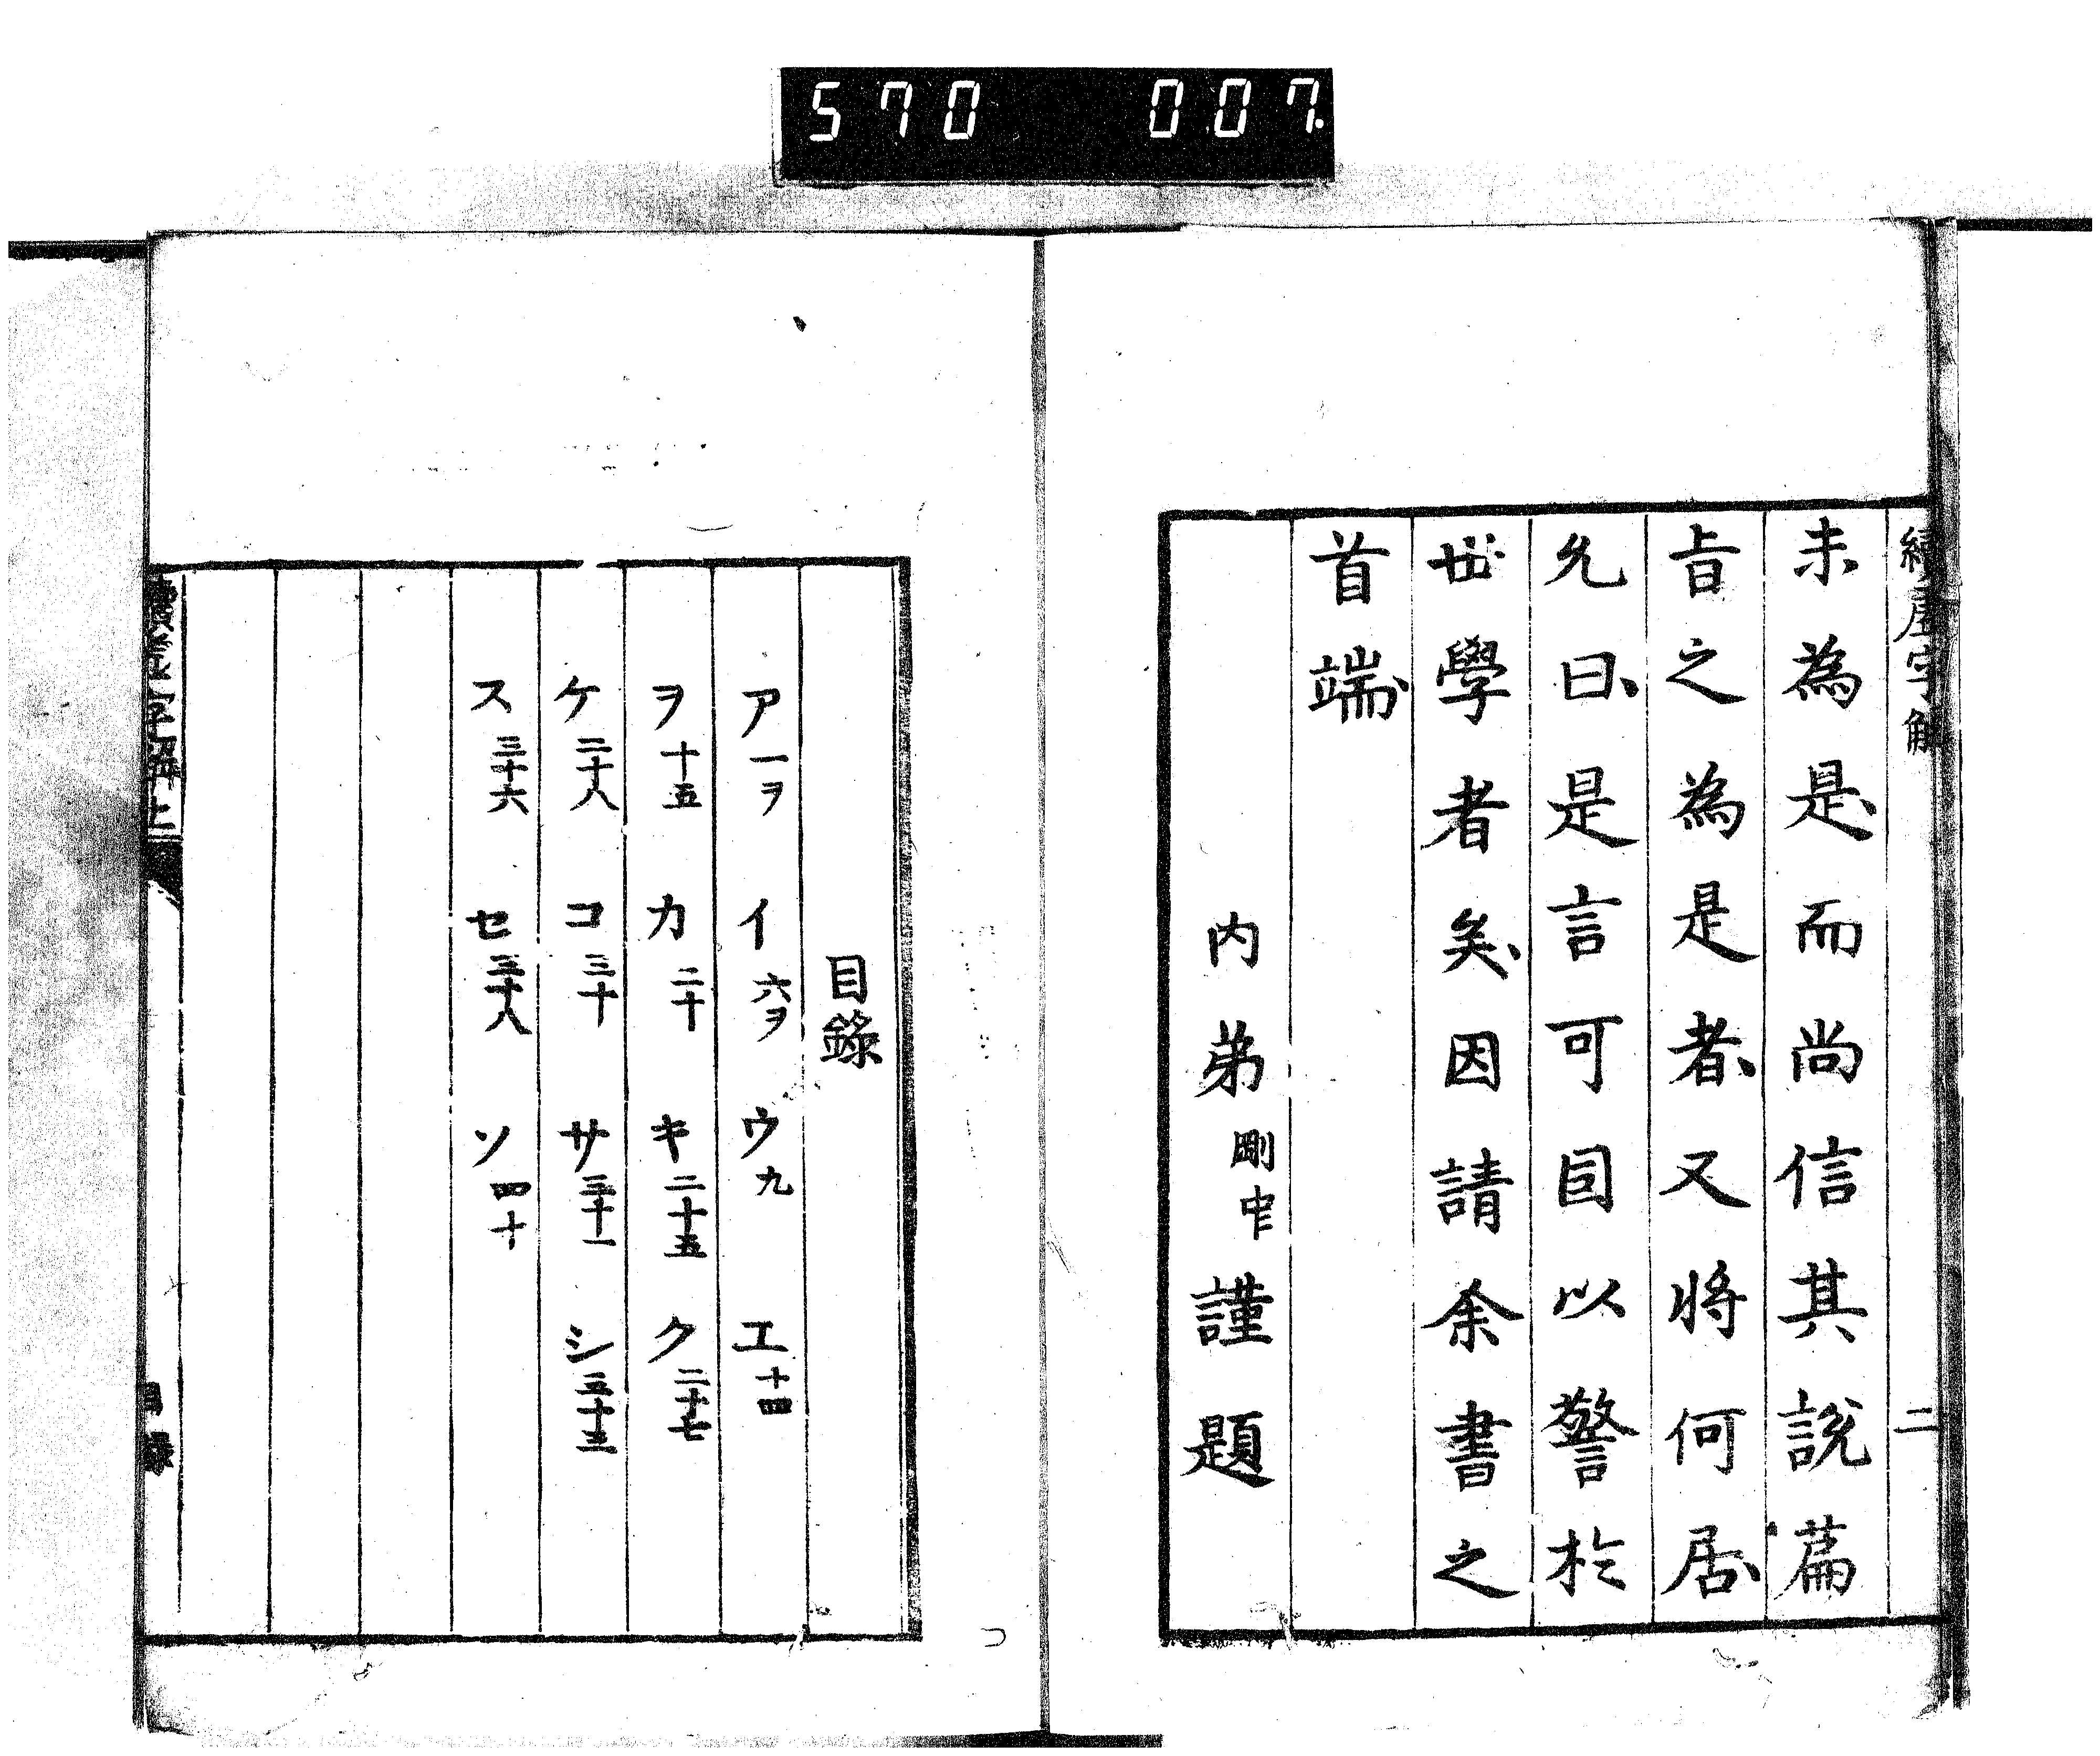 570 007.
續虛字解
二
未為是、而尚信其說篇
旨之為是者、又將何居、
允曰、是言可目以警於
世學者矣、因請余書之
首端、
内弟剛中謹題
目錄
ア一ヲ イ六ヲ ウ九 エ十四
ヲ十五 カ二十 キ二十五 ク二十七
ケ二十八 コ三十 サ三十一 シ三十三
ス三十六 セ三十八 ソ四十
目錄